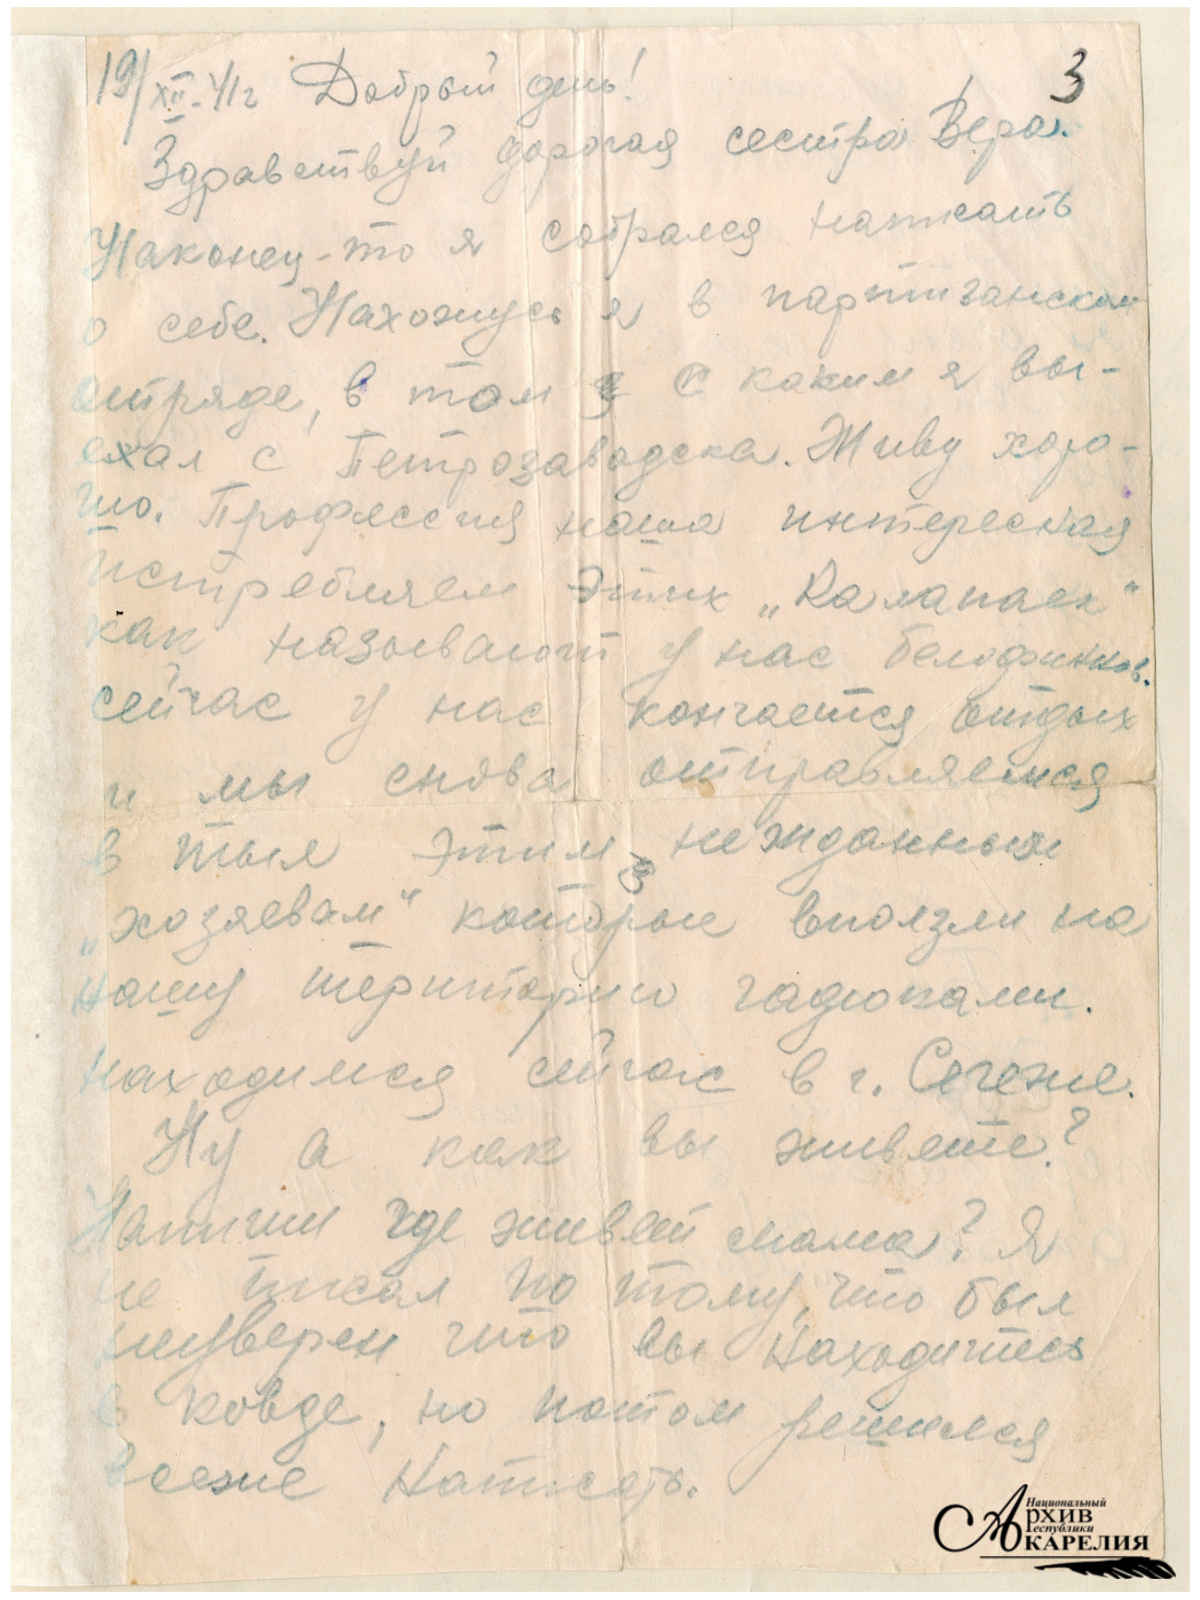 19/XII-41г Добрый день!
3
Здравствуй дорогая сестра Вера.
Наконец-то я собрался написать
о себе. Нахожусь я в партизанском
отряде, в том с каким я вы-
ехал с Петрозаводска. Живу хоро-
шо. Профессия наша интересная
истребляем этих
как называют у нас белофиннов.
сейчас у нас кончается отдых
и мы снова отправляемся
в тыл этим нежданным
„хозяевам" которые вползли на
нашу територию гадюками.
находимся сейчас в г. Сегеже.
Ну а как вы живете?
Напиши где живет мама? Я
не писал по тому, что был
неуверен что вы находитесь
в Ковде, но потом решился
всеже написать.
Национальный
Архив
Республики
Карелия